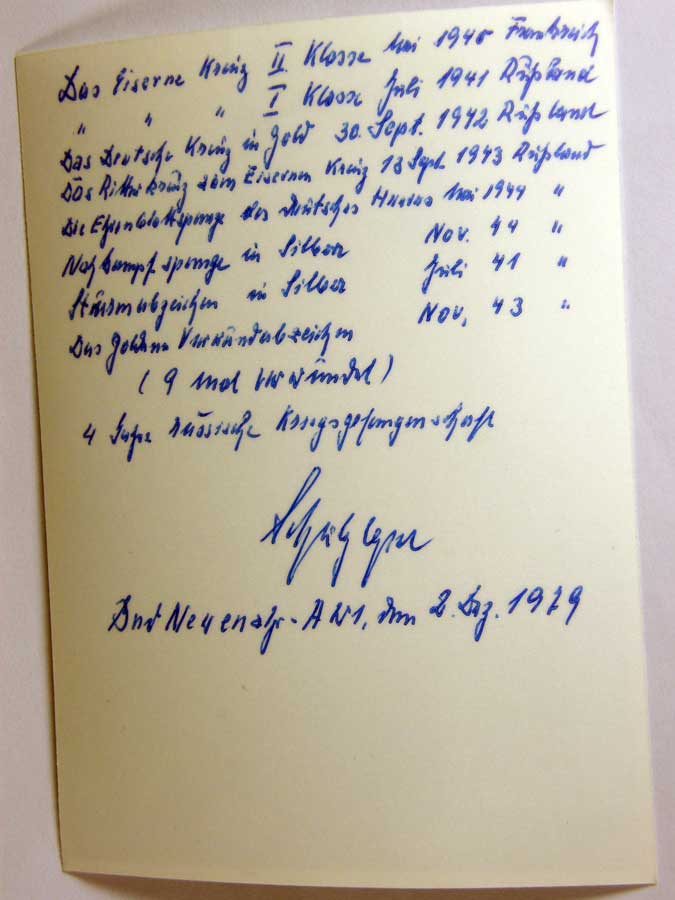 Das Eiserne Kreuz II Klasse Mai 1940 Frankreich
" " " I Klasse Juli 1941 Rußland
Das Deutsche Kreuz in Gold 30. Sept. 1942 Rußland
Das Ritterkreuz zum Eisernen Kreuz 13 Sept 1943 Rußland
Die Ehrenblattspange des Deutschen Heeres Mai 1944 "
Nahkampfspange in Silber Nov. 44 "
Sturmabzeichen in Silber Juli 41 "
Das Goldene Verwundabzeichen Nov, 43 "
(9 mal verwundet)
4 Jahre russische Kriegsgefangenschaft
Bad Neuenahr-AW1, den 2. Dez. 1979